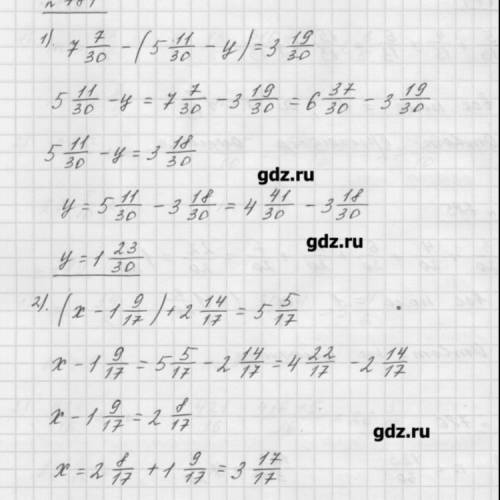 1). 7 7/30 − (5 11/30 − y) = 3 19/30
5 11/30 − y = 7 7/30 − 3 19/30 = 6 37/30 − 3 19/30
5 11/30 − y = 3 18/30
gdz.ru
y = 5 11/30 − 3 18/30 = 4 41/30 − 3 18/30
gdz.ru
y = 1 23/30
2). (x − 1 9/17) + 2 14/17 = 5 5/17
x − 1 9/17 = 5 5/17 − 2 14/17 = 4 22/17 − 2 14/17
x − 1 9/17 = 2 8/17
gdz.ru
x = 2 8/17 + 1 9/17 = 3 17/17